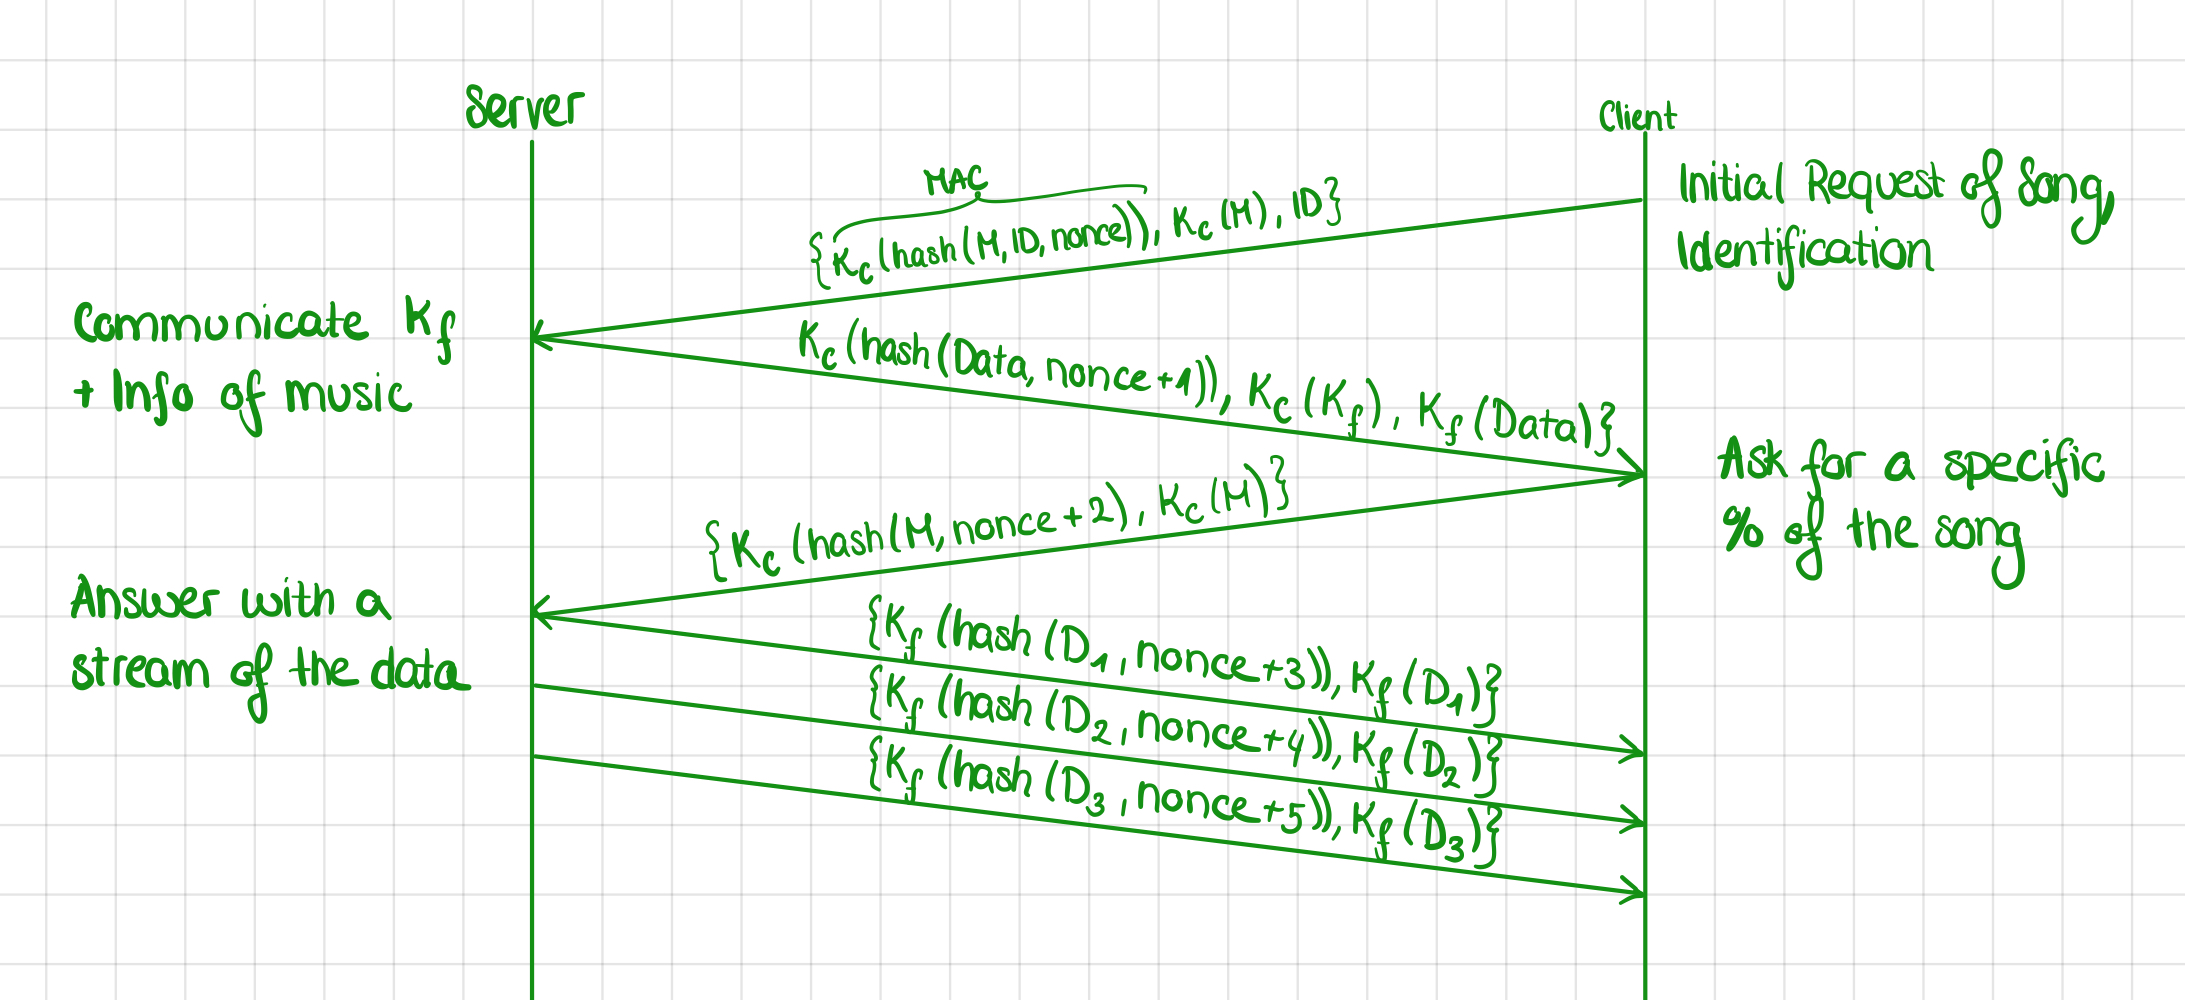 Server
Client
MAC
{Kc(hash(M,ID,nonce)), Kc(M), ID}
Initial Request of Song,
Identification
Communicate Kf
+ Info of music
Kc(hash(Data, nonce+1)), Kc(Kf), Kf(Data)}
Ask for a specific
% of the song
{Kc(hash(M,nonce+2), Kc(M)}
Answer with a
stream of the data
{Kf(hash(D1, nonce+3)), Kf(D1)}
{Kf(hash(D2, nonce+4)), Kf(D2)}
{Kf(hash(D3, nonce+5)), Kf(D3)}